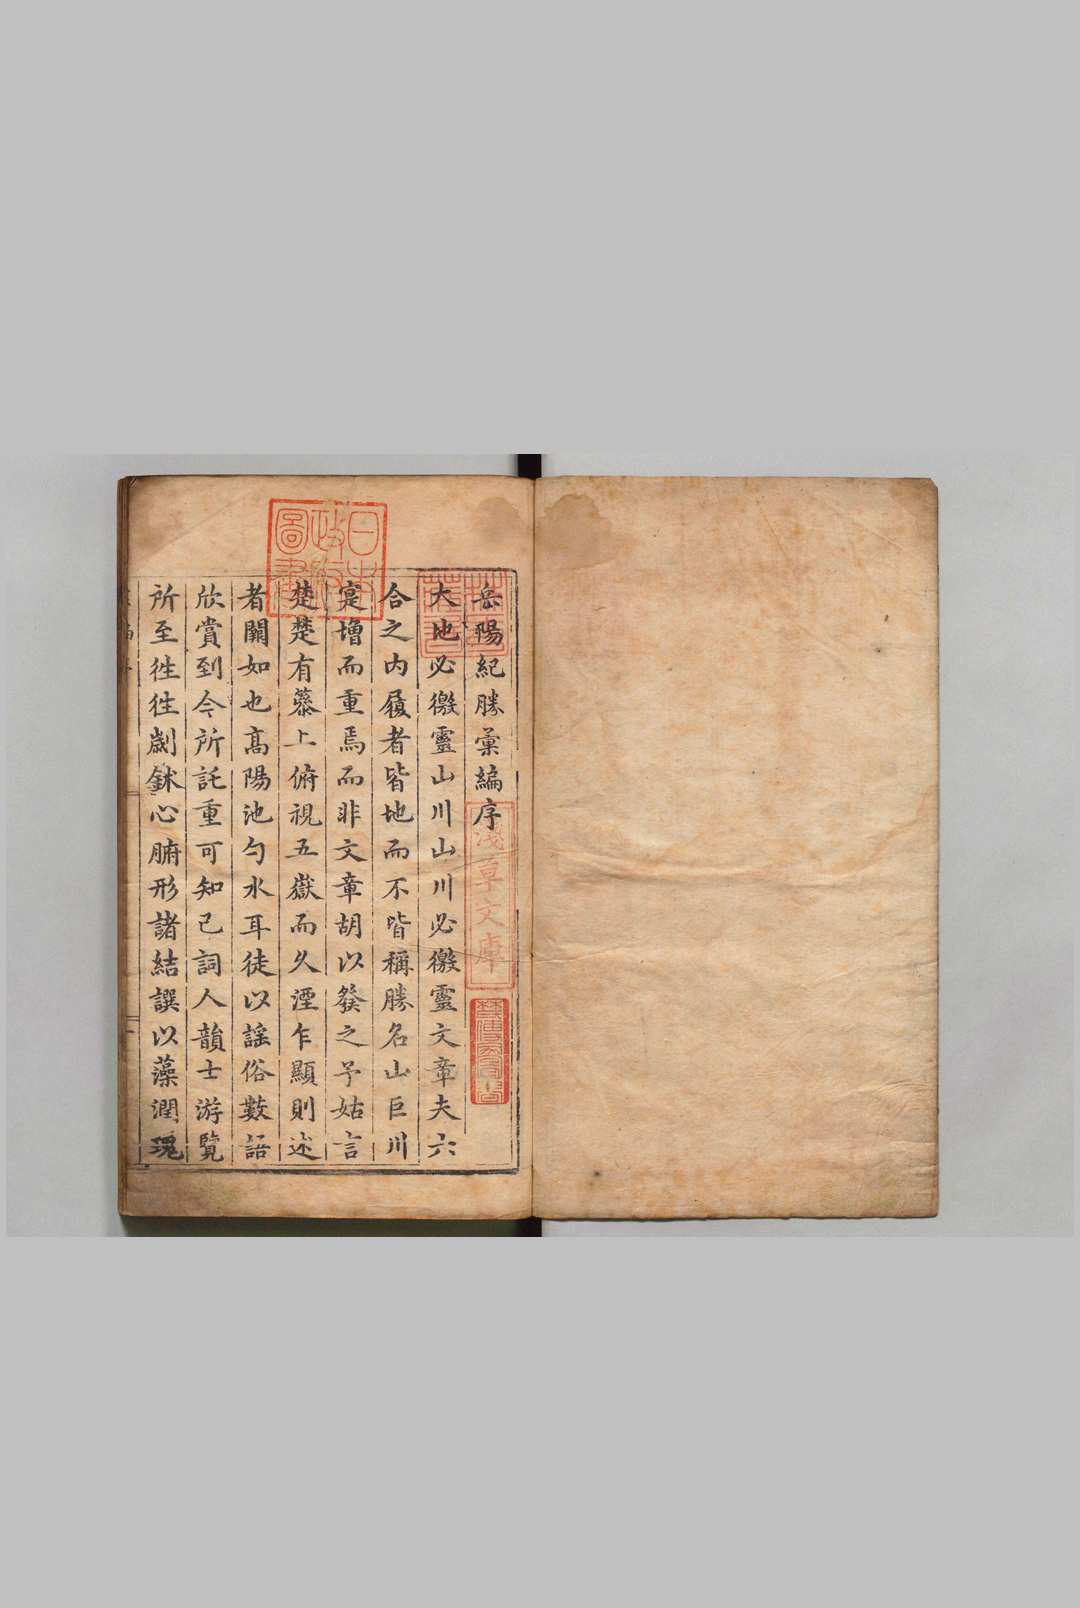 岳陽紀勝彙編序
大地必徵靈山川山川必徵靈文章夫六
合之内履者皆地而不皆稱勝名山巨川
寔增而重焉而非文章胡以發之予姑言
楚楚有蔡上俯視五嶽而久湮乍顯則述
者闕如也高陽池勺水耳徒以謡俗數語
欣賞到今所託重可知已詞人韻士游覽
所至徃徃劌鉥心腑形諸結譔以藻潤瑰
日本政府圖書
淺草文庫